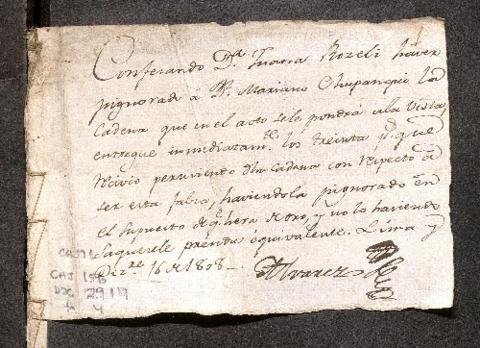 Confesando D.ª Juana Rozeli haver
pignorado á D. Mariano Chupanqui la
Cadena que en el acto sele pondrá ala Vista,
entregue inmediatam.te los treinta p.s que
recivio perciviendo dha Cadena con respecto á
ser esta falsa, haviendola pignorado en
el supuesto de q.e hera de oro, y no lo haciendo
saquesele prendas equivalente. Lima y
Diz.re 16 de 1808-
Alvarez
CAJ 158
DOC 2919
f 4